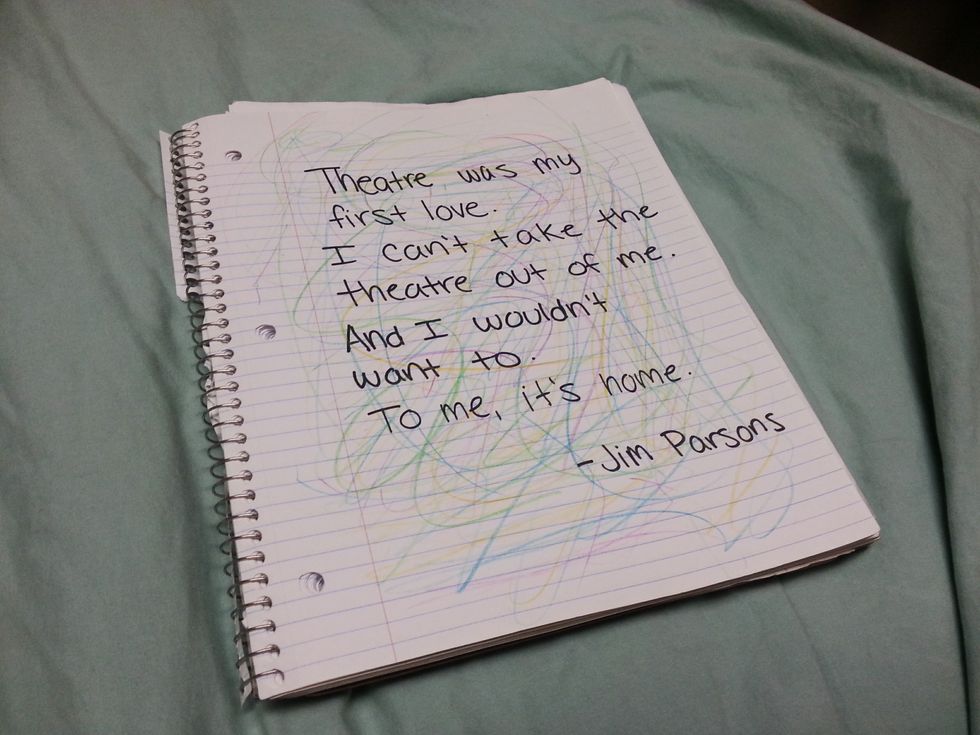 Theatre was my
first love.
I can't take the
theatre out of me.
And I wouldn't
want to.
To me, it's home.
-Jim Parsons